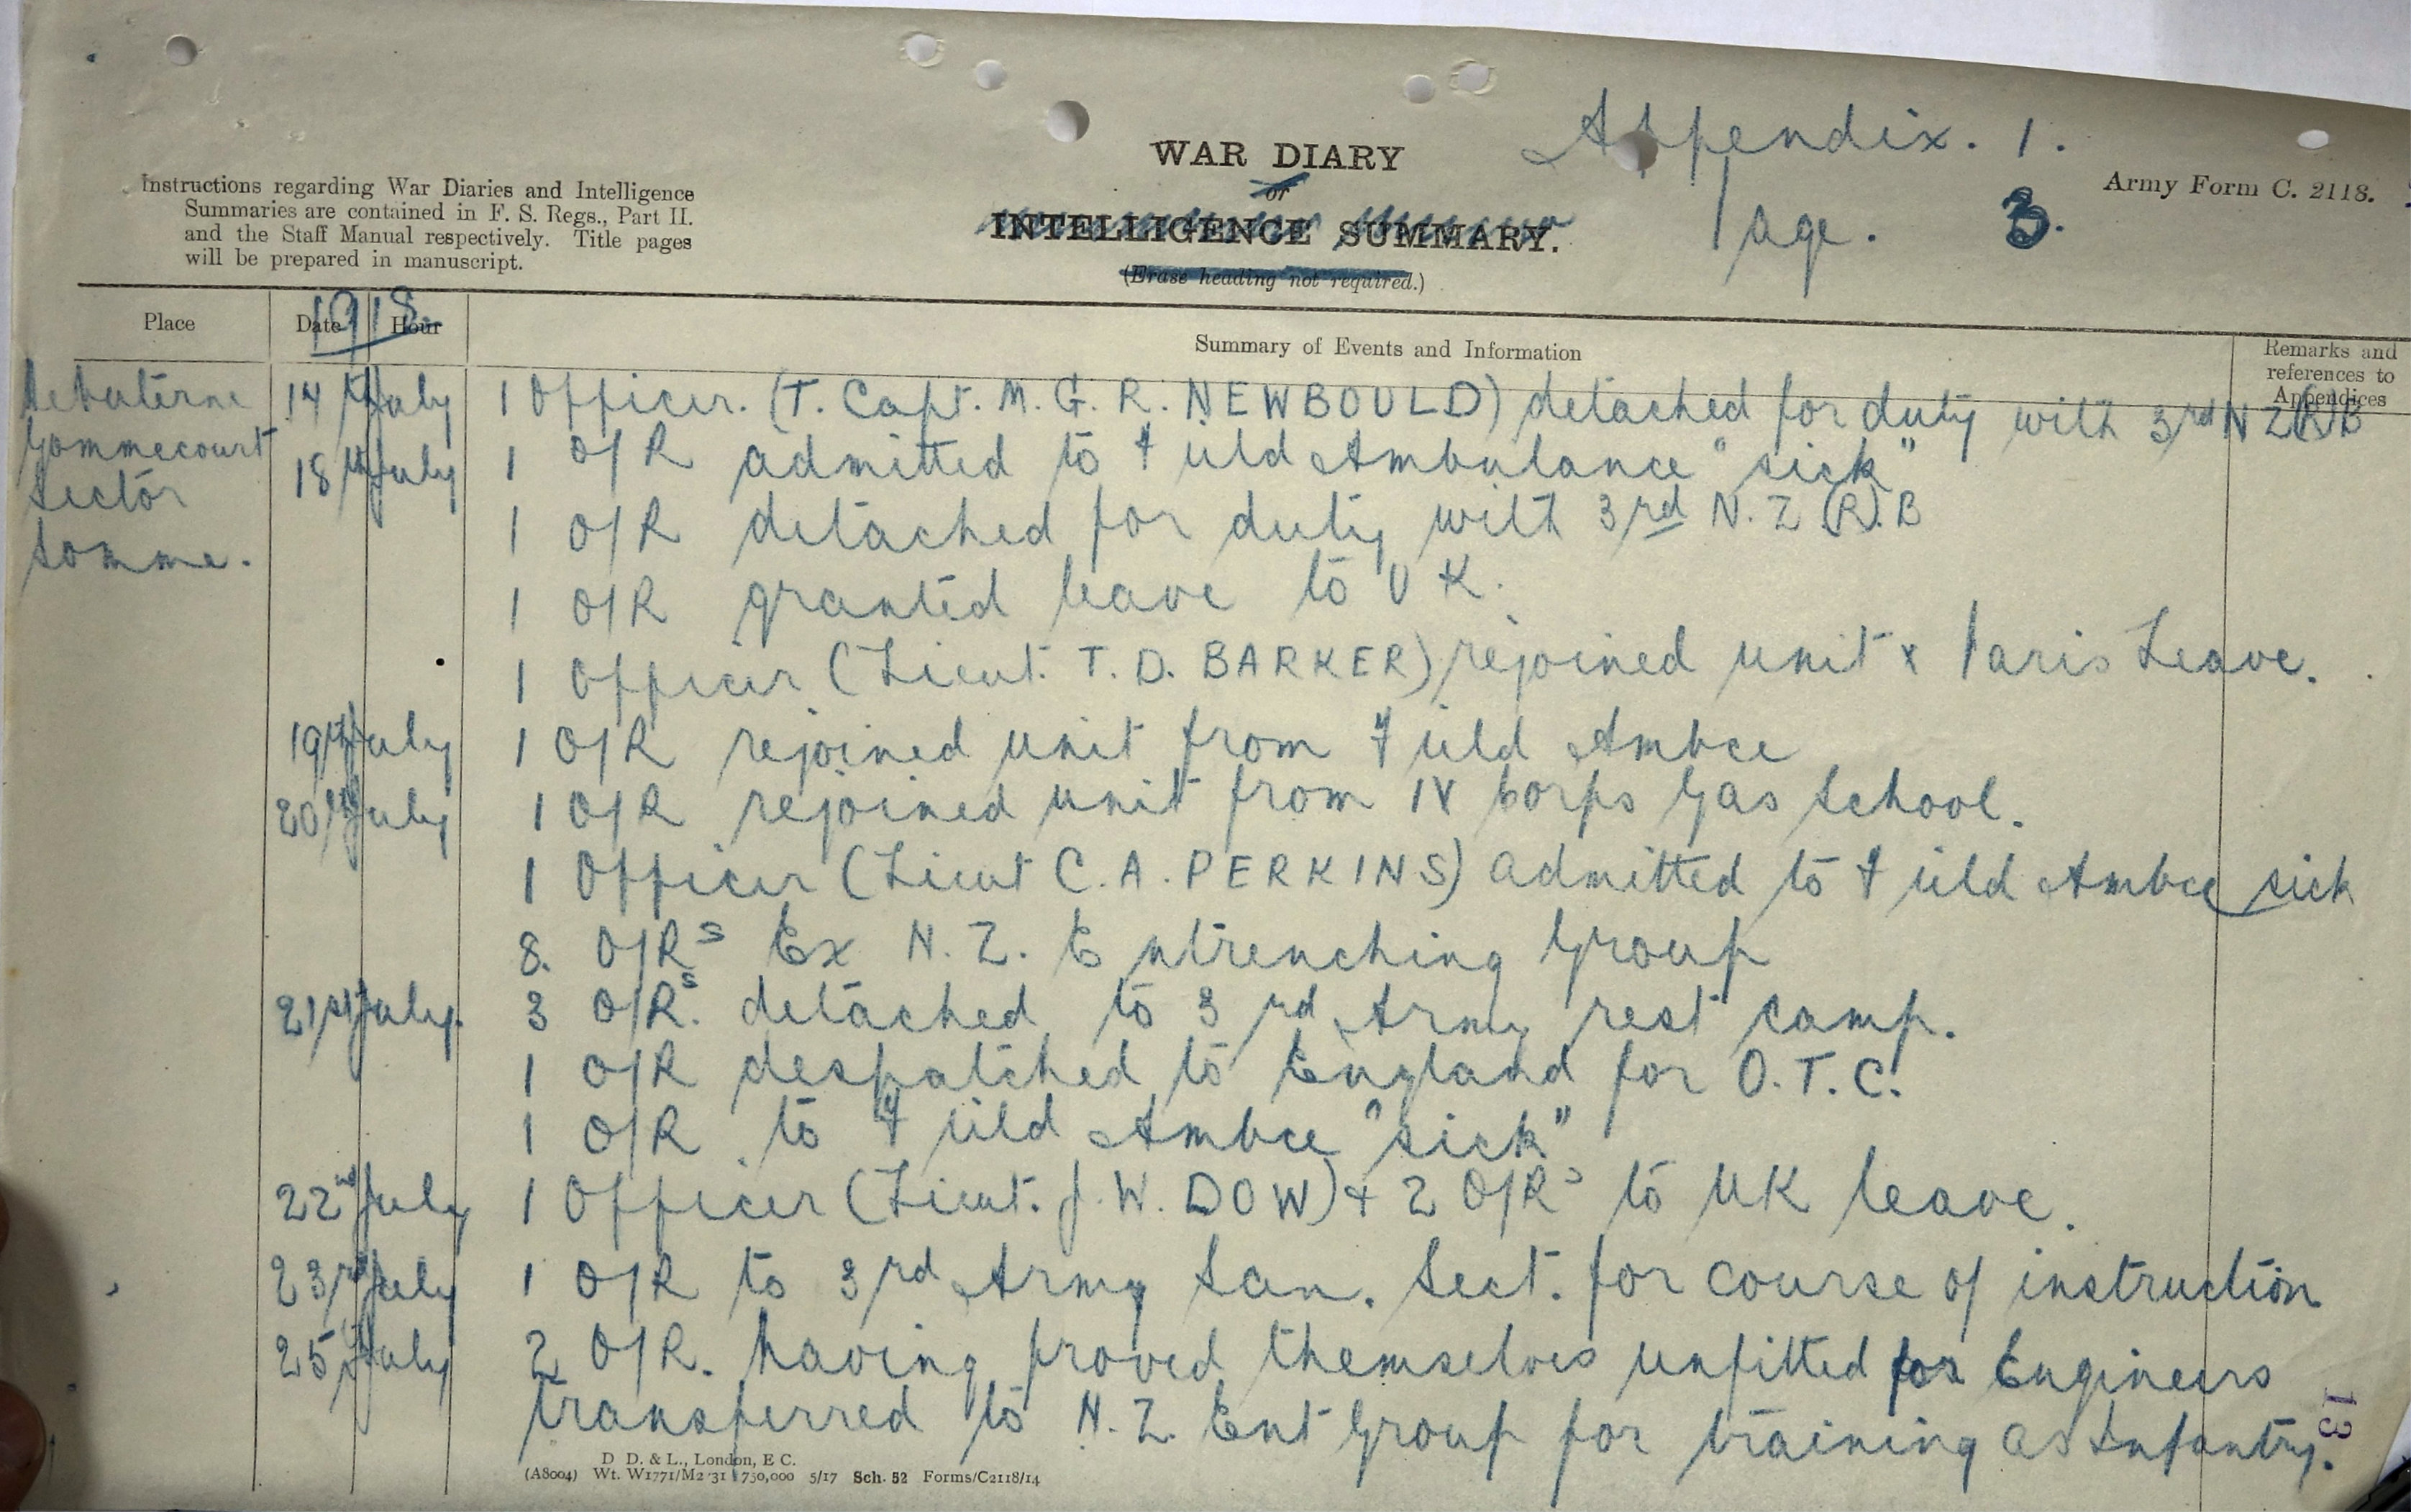 Appendix. 1.
Page. 3.
Army Form C. 2118.
WAR DIARY
or
INTELLIGENCE SUMMARY.
(Erase heading not required.)
Instructions regarding War Diaries and Intelligence
Summaries are contained in F. S. Regs., Part II.
and the Staff Manual respectively. Title pages
will be prepared in manuscript.
1918.
Place Date Hour Summary of Events and Information Remarks and references to Appendices
Hebuterne 14th July 1 Officer. (T. Capt. M. G. R. NEWBOULD) detached for duty with 3rd N Z (R) B
Gommecourt 18th July 1 O/R admitted to Field Ambulance "sick"
Sector 1 O/R detached for duty with 3rd N. Z (R). B
Somme. 1 O/R granted leave to U K.
1 Officer (Lieut. T. D. BARKER) rejoined unit x Paris Leave.
19th July 1 O/R rejoined unit from Field Ambce
20th July 1 O/R rejoined unit from IV Corps Gas School.
1 Officer (Lieut C. A. PERKINS) admitted to Field Ambce sick
8. O/Rs Ex N. Z. Entrenching Group
21st July. 3 O/Rs. detached to 3rd Army rest camp.
1 O/R despatched to England for O. T. C.
1 O/R to Field Ambce "sick"
22nd July 1 Officer (Lieut. J. W. DOW) + 2 O/Rs to UK leave.
23rd July 1 O/R to 3rd Army San. Sect. for course of instruction
25th July 2 O/R. having proved themselves unfitted for Engineers
transferred to N. Z. Ent Group for training as Infantry.
13
D D. & L., London, E C.
(A8004) Wt. W1771/M2 31 750,000 5/17 Sch. 52 Forms/C2118/14